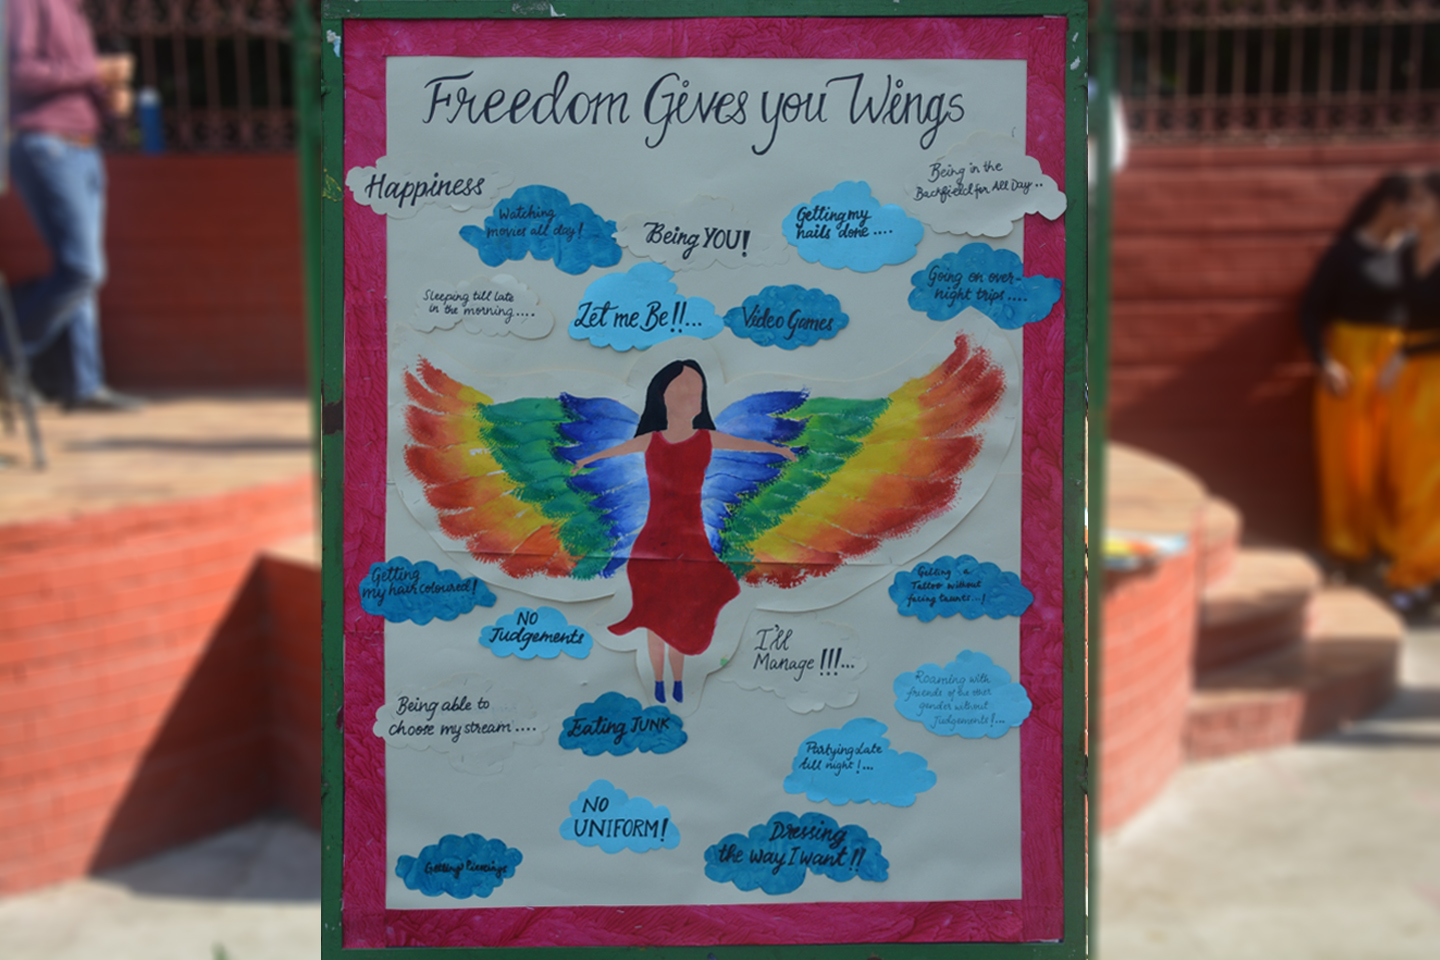 Freedom Gives you Wings
Happiness
Watching
movies all day!
Being YOU!
Getting my
nails done ....
Being in the
Backfield for All Day..
Sleeping till late
in the morning....
Let me Be!!...
Video Games
Going on over-
night trips....
Getting
my hair coloured!
NO
Judgements
I'll
Manage !!!...
Getting a
Tattoo without
facing taunts...!
Being able to
choose my stream....
Eating JUNK
Roaming with
friends of the other
gender without
Judgements!...
Partying Late
till night!...
NO
UNIFORM!
Dressing
the way I want!!
Getting Piercings